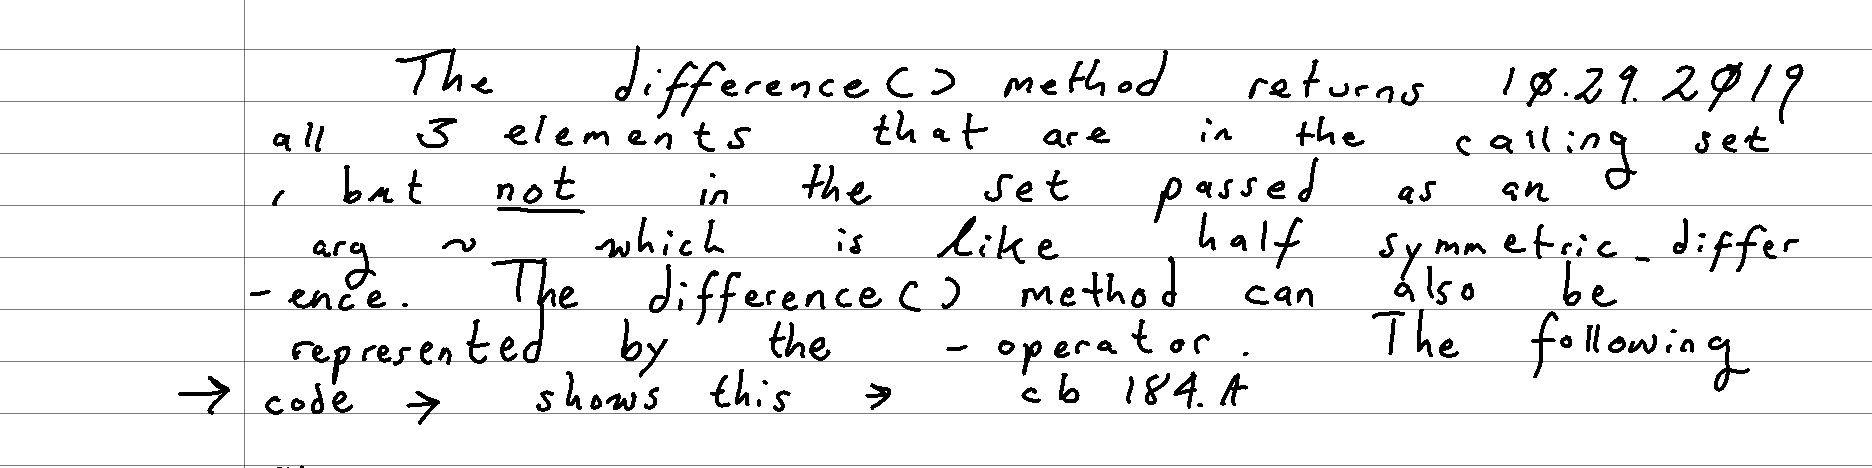 The difference() method returns 10.29.2019
all 3 elements that are in the calling set
, but not in the set passed as an
arg ~ which is like half symmetric_differ
-ence. The difference() method can also be
represented by the - operator. The following
→ code → shows this → cb 184.A